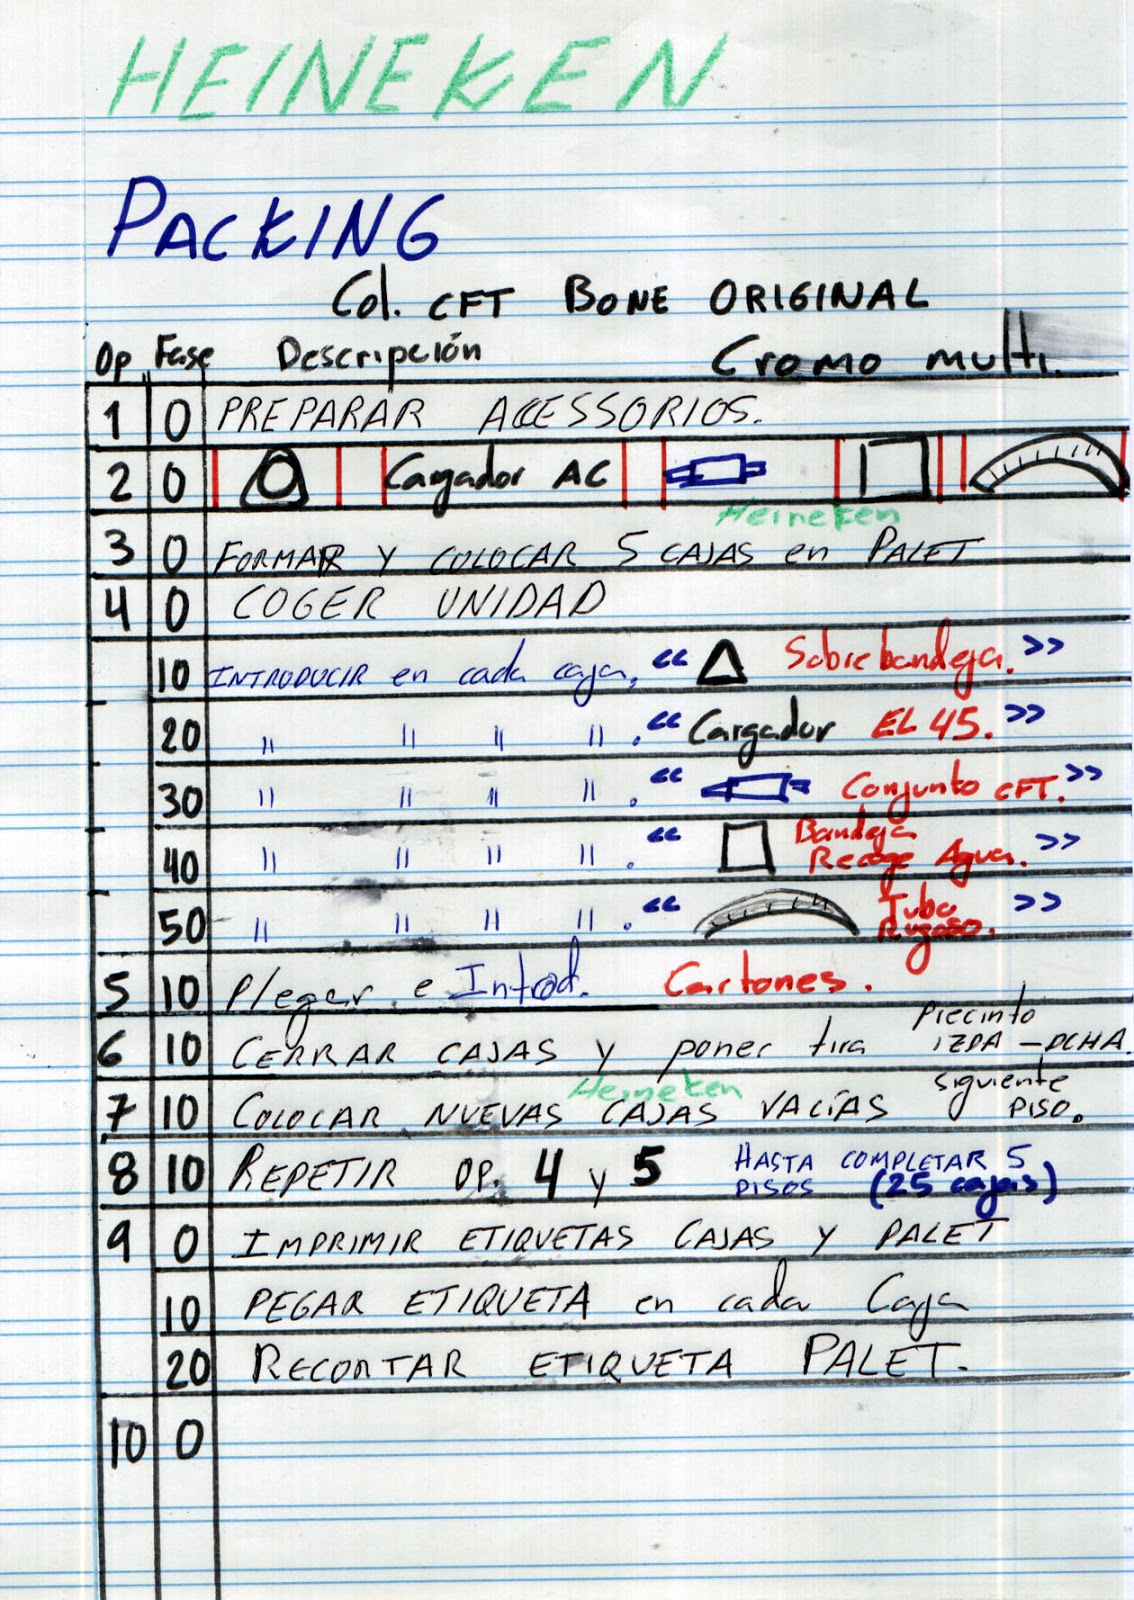 HEINEKEN
PACKING
Col. CFT BONE ORIGINAL
Op Fase Descripción Cromo multi.
1 0 PREPARAR ACCESSORIOS.
2 0 Cargador AC
Heineken
3 0 FORMAR Y COLOCAR 5 CAJAS en PALET
4 0 COGER UNIDAD
10 INTRODUCIR en cada caja, << Sobrebandeja. >>
20 " " " " . << Cargador EL 45. >>
30 " " " " . << Conjunto CFT. >>
40 " " " " . << Bandeja Recoge Agua. >>
50 " " " " . << Tubo Rugoso. >>
5 10 Plegar e Introd. Cartones.
6 10 CERRAR CAJAS y poner tira Precinto IZDA - DCHA.
Heineken
7 10 COLOCAR NUEVAS CAJAS VACÍAS siguiente PISO.
8 10 REPETIR OP. 4 y 5 HASTA COMPLETAR 5 PISOS (25 cajas)
9 0 IMPRIMIR ETIQUETAS CAJAS Y PALET
10 PEGAR ETIQUETA en cada Caja
20 RECORTAR ETIQUETA PALET.
10 0